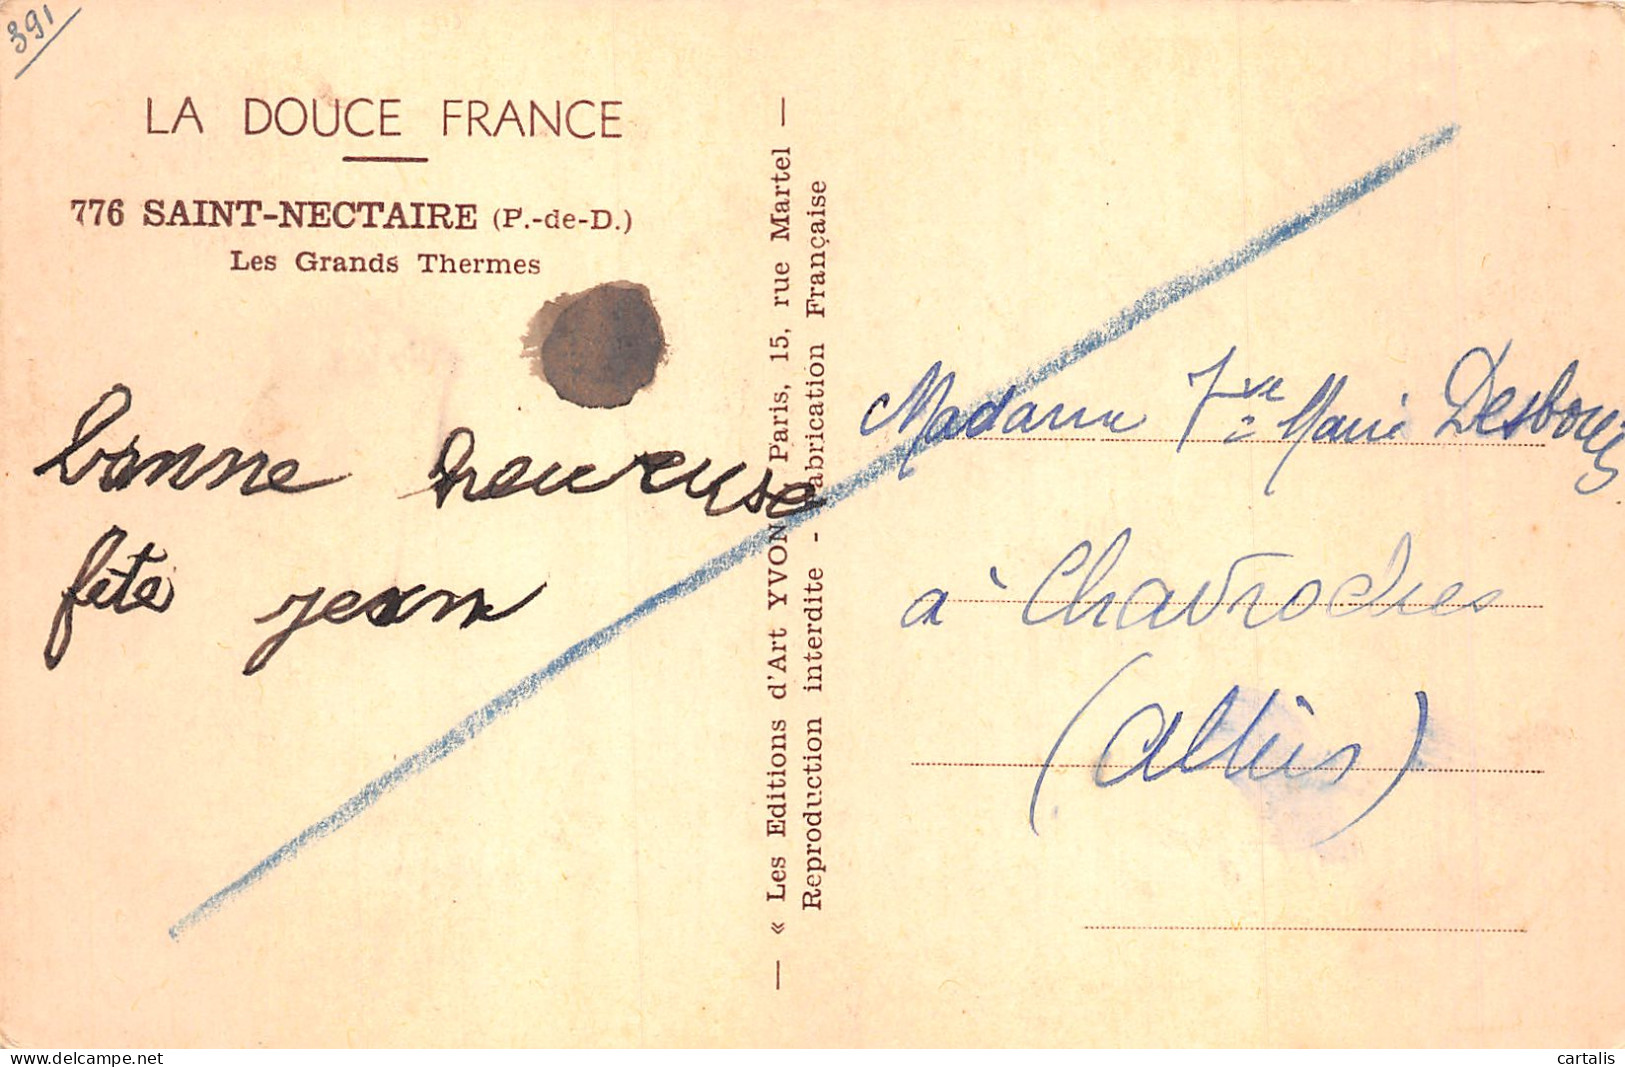 391
LA DOUCE FRANCE
776 SAINT-NECTAIRE (P.-de-D.)
Les Grands Thermes
bonne heureuse
fête jean
— « Les Editions d'Art YVON Paris, 15, rue Martel —
Reproduction interdite - Fabrication Française
Madame Vve Marie
à Chavroches
(Allier)
www.delcampe.net
cartalis